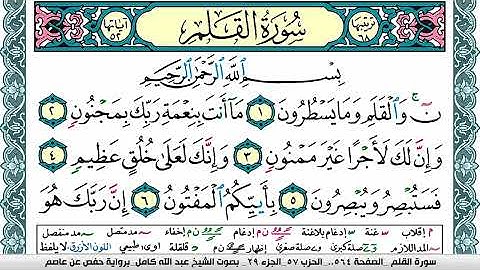 ترتيبها ٦٨
سورة القلم
آياتها ٥٢
بِسْمِ اللَّهِ الرَّحْمَٰنِ الرَّحِيمِ
نٓ ۚ وَالْقَلَمِ وَمَا يَسْطُرُونَ ١ مَا أَنتَ بِنِعْمَةِ رَبِّكَ بِمَجْنُونٍ ٢
وَإِنَّ لَكَ لَأَجْرًا غَيْرَ مَمْنُونٍ ٣ وَإِنَّكَ لَعَلَىٰ خُلُقٍ عَظِيمٍ ٤
فَسَتُبْصِرُ وَيُبْصِرُونَ ٥ بِأَييِّكُمُ الْمَفْتُونُ ٦ إِنَّ رَبَّكَ هُوَ
م إقلاب غنة إدغام بلاغنة إدغام ن م إخفاء ن م مد متصل مد منفصل
المد اللازم صلة كبرى صلة صغرى إظهار ن م قلقلة ا و ى طبيعي اللون الأزرق لا يلفظ
سورة القلم _ الصفحة ٥٦٤_ الحزب ٥٧_ الجزء ٢٩_ بصوت الشيخ عبد الله كامل_ برواية حفص عن عاصم